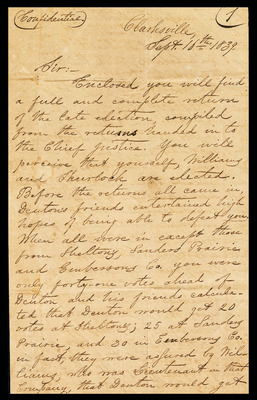 Confidential
1
Clarksville,
Sept. 16th 1839
Sir:-
Enclosed you will find
a full and complete return
of the late election, compiled
from the returns handed in to
the Chief Justice. You will
perceive that yourself, Williams
and are elected.
Before the returns all came in,
Dentons friends entertained high
hopes of being able to defeat you.
When all were in except those
from Sheltons, Sanders Prairie
and Emberson's Co. you were
only forty-one votes ahead of
Denton and his friends calcula-
ted that Denton would get 20
votes at Sheltons; 25 at Sanders
Prairie, and 30 in Embersons Co.
in fact, they were assured by Wil-
liams, who was Lieutenant in that
Company, that Denton would get